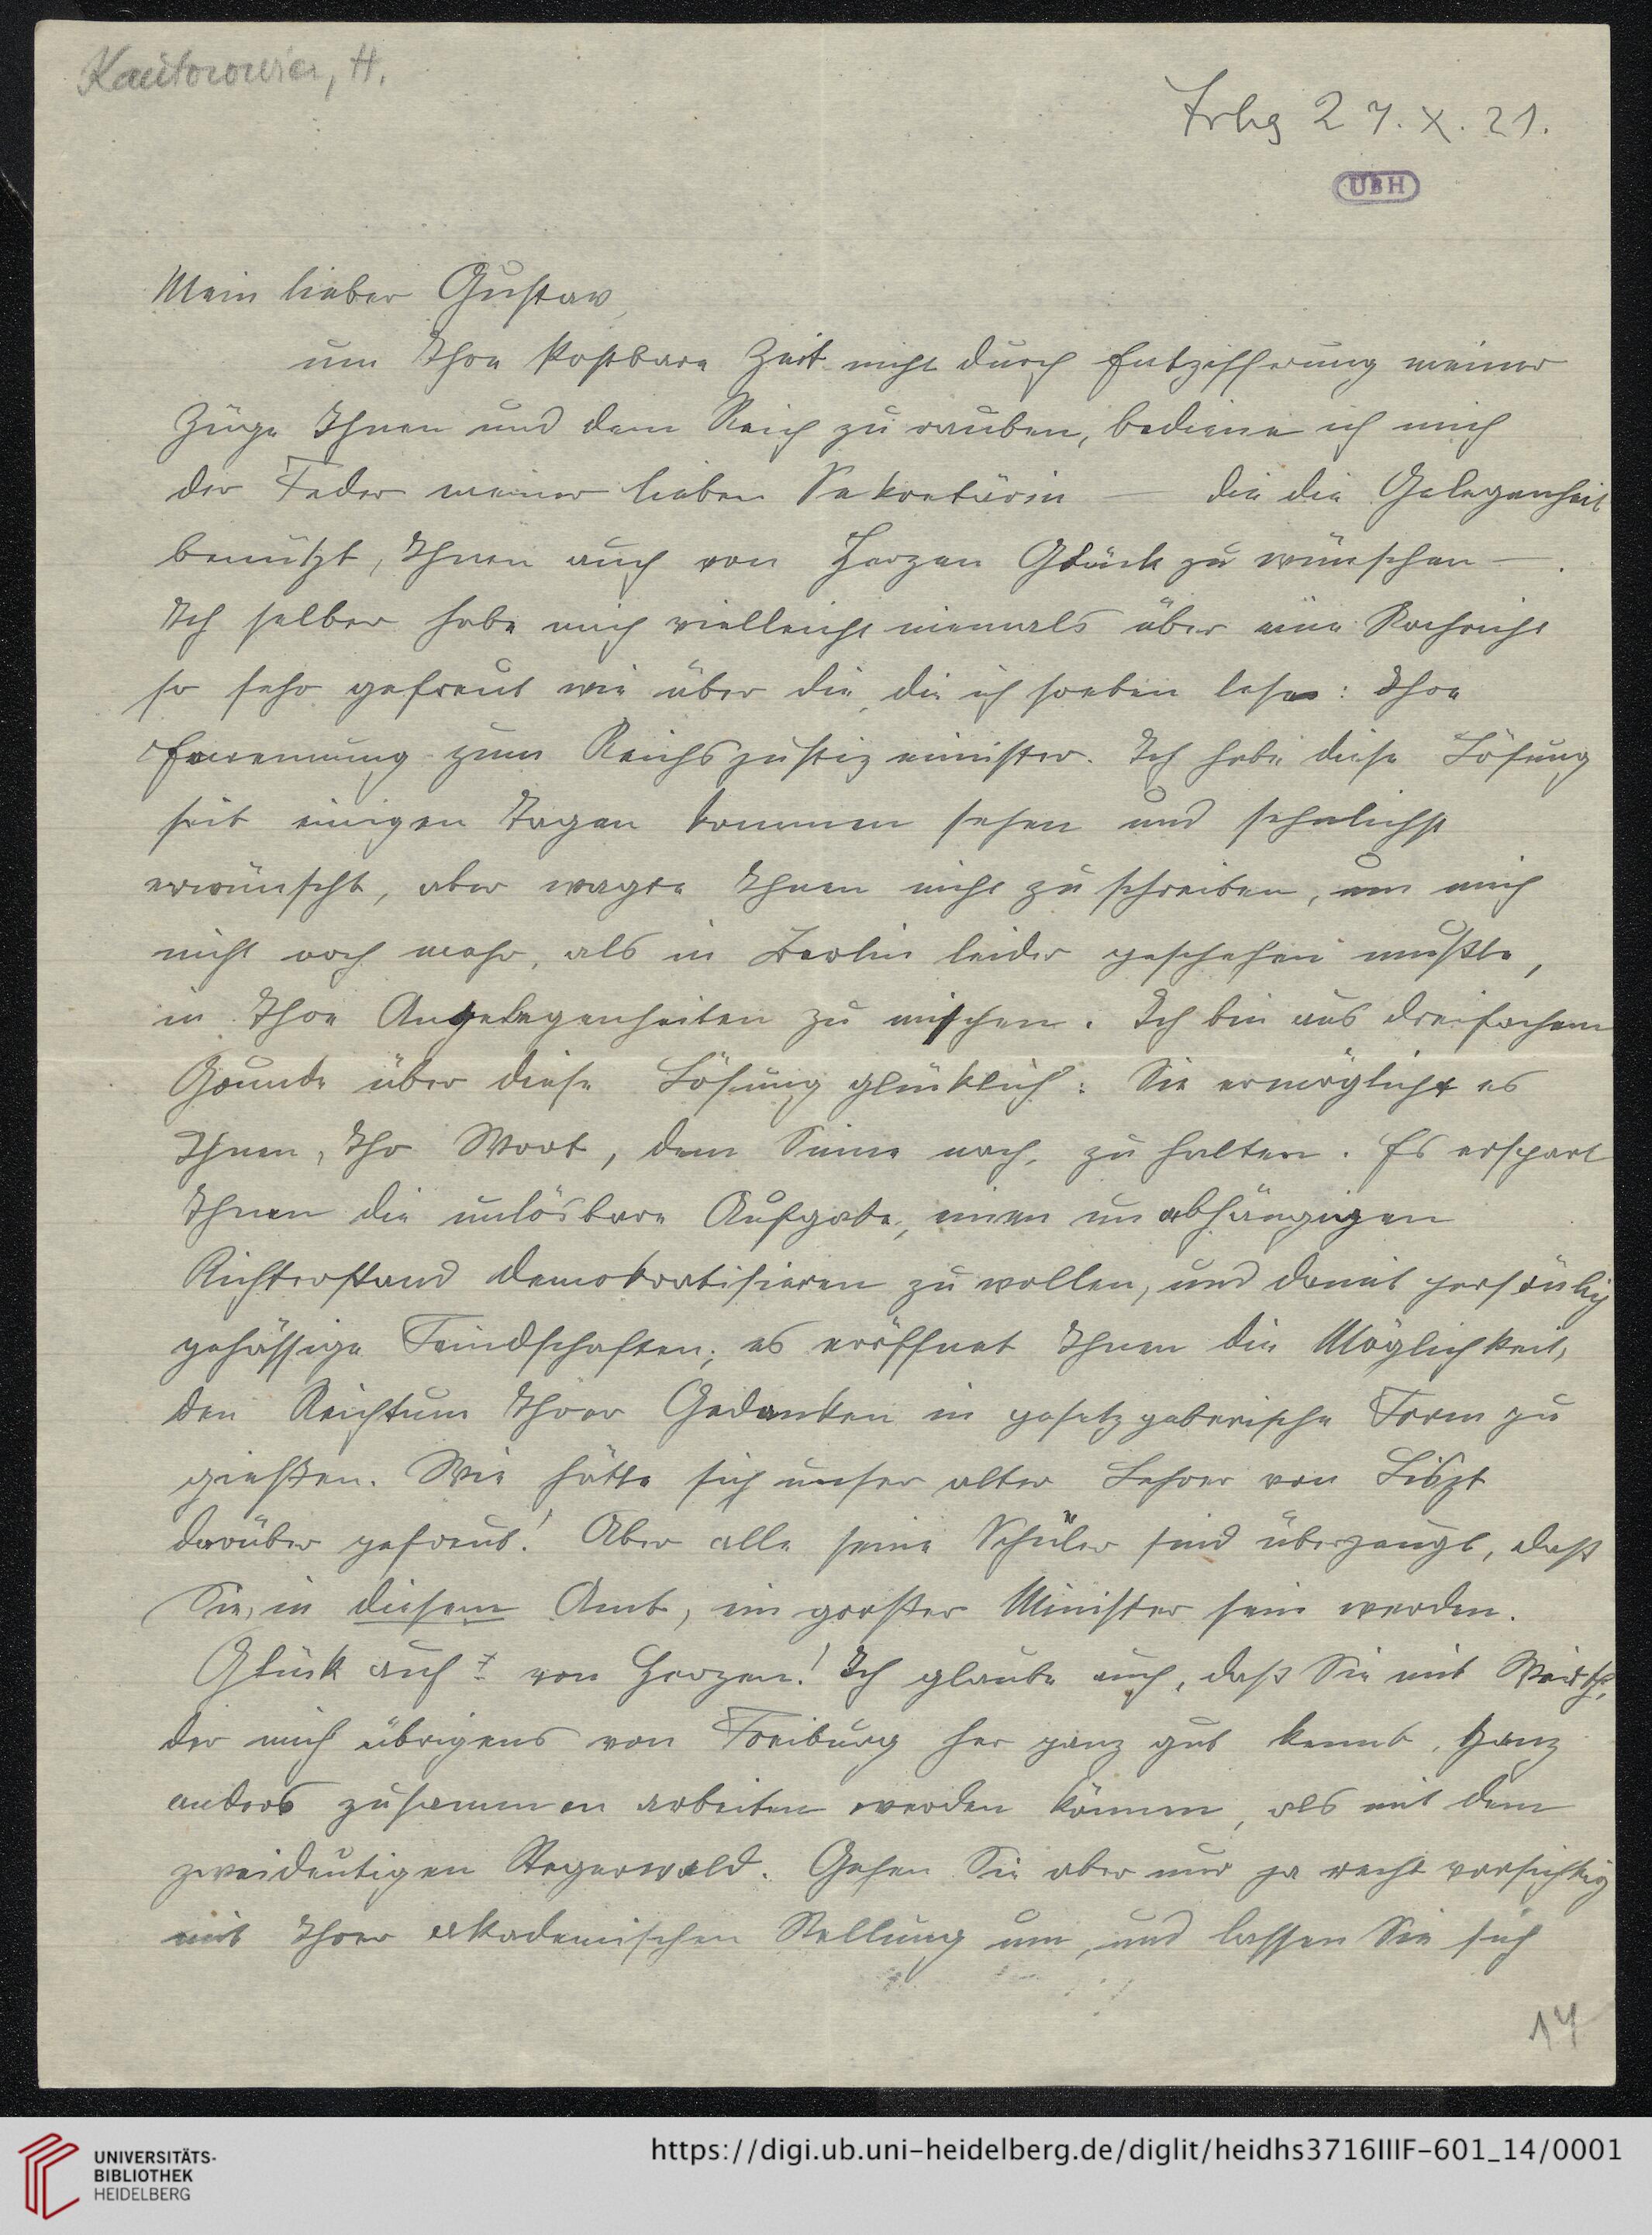 Kantorowicz, H.
Frbg 27. X. 21.
UBH
Mein lieber Gustav,
um Ihre kostbare Zeit nicht durch Entzifferung meiner
Züge Ihnen und dem Reich zu rauben, bediene ich mich
der Feder meiner lieben Sekretärin — die die Gelegenheit
benützt, Ihnen auch von Herzen Glück zu wünschen —.
Ich selber habe mich vielleicht niemals über eine Nachricht
so sehr gefreut wie über die, die ich soeben lese: Ihre
Ernennung zum Reichsjustizminister. Ich habe diese Lösung
seit einigen Tagen kommen sehen und sehnlichst
erwünscht, aber wagte Ihnen nicht zu schreiben, um mich
nicht noch mehr, als in Berlin leider geschehen mußte,
in Ihre Angelegenheiten zu mischen. Ich bin aus dreifachem
Grunde über diese Lösung glücklich: Sie ermöglicht es
Ihnen, Ihr Wort, dem Sinne nach, zu halten. Es erspart
Ihnen die unlösbare Aufgabe, einen unabhängigen
Richterstand demokratisieren zu wollen, und damit persönlich
gehässige Feindschaften; es eröffnet Ihnen die Möglichkeit,
den Reichtum Ihrer Gedanken in gesetzgeberische Form zu
gießen. Wie hätte sich unser alter Lehrer von Liszt
darüber gefreut! Aber alle seine Schüler sind überzeugt, daß
Sie, in diesem Amt, ein großer Minister sein werden.
Glück auf von Herzen! Ich glaube auch, daß Sie mit Wirth,
der mich übrigens von Freiburg her ganz gut kennt, ganz
anders zusammen arbeiten werden können, als mit dem
zweideutigen Stegerwald. Gehen Sie aber nur ja recht vorsichtig
mit Ihrer akademischen Stellung um, und lassen Sie sich
14
UNIVERSITÄTS-
BIBLIOTHEK
HEIDELBERG
https://digi.ub.uni-heidelberg.de/diglit/heidhs3716IIIF-601_14/0001